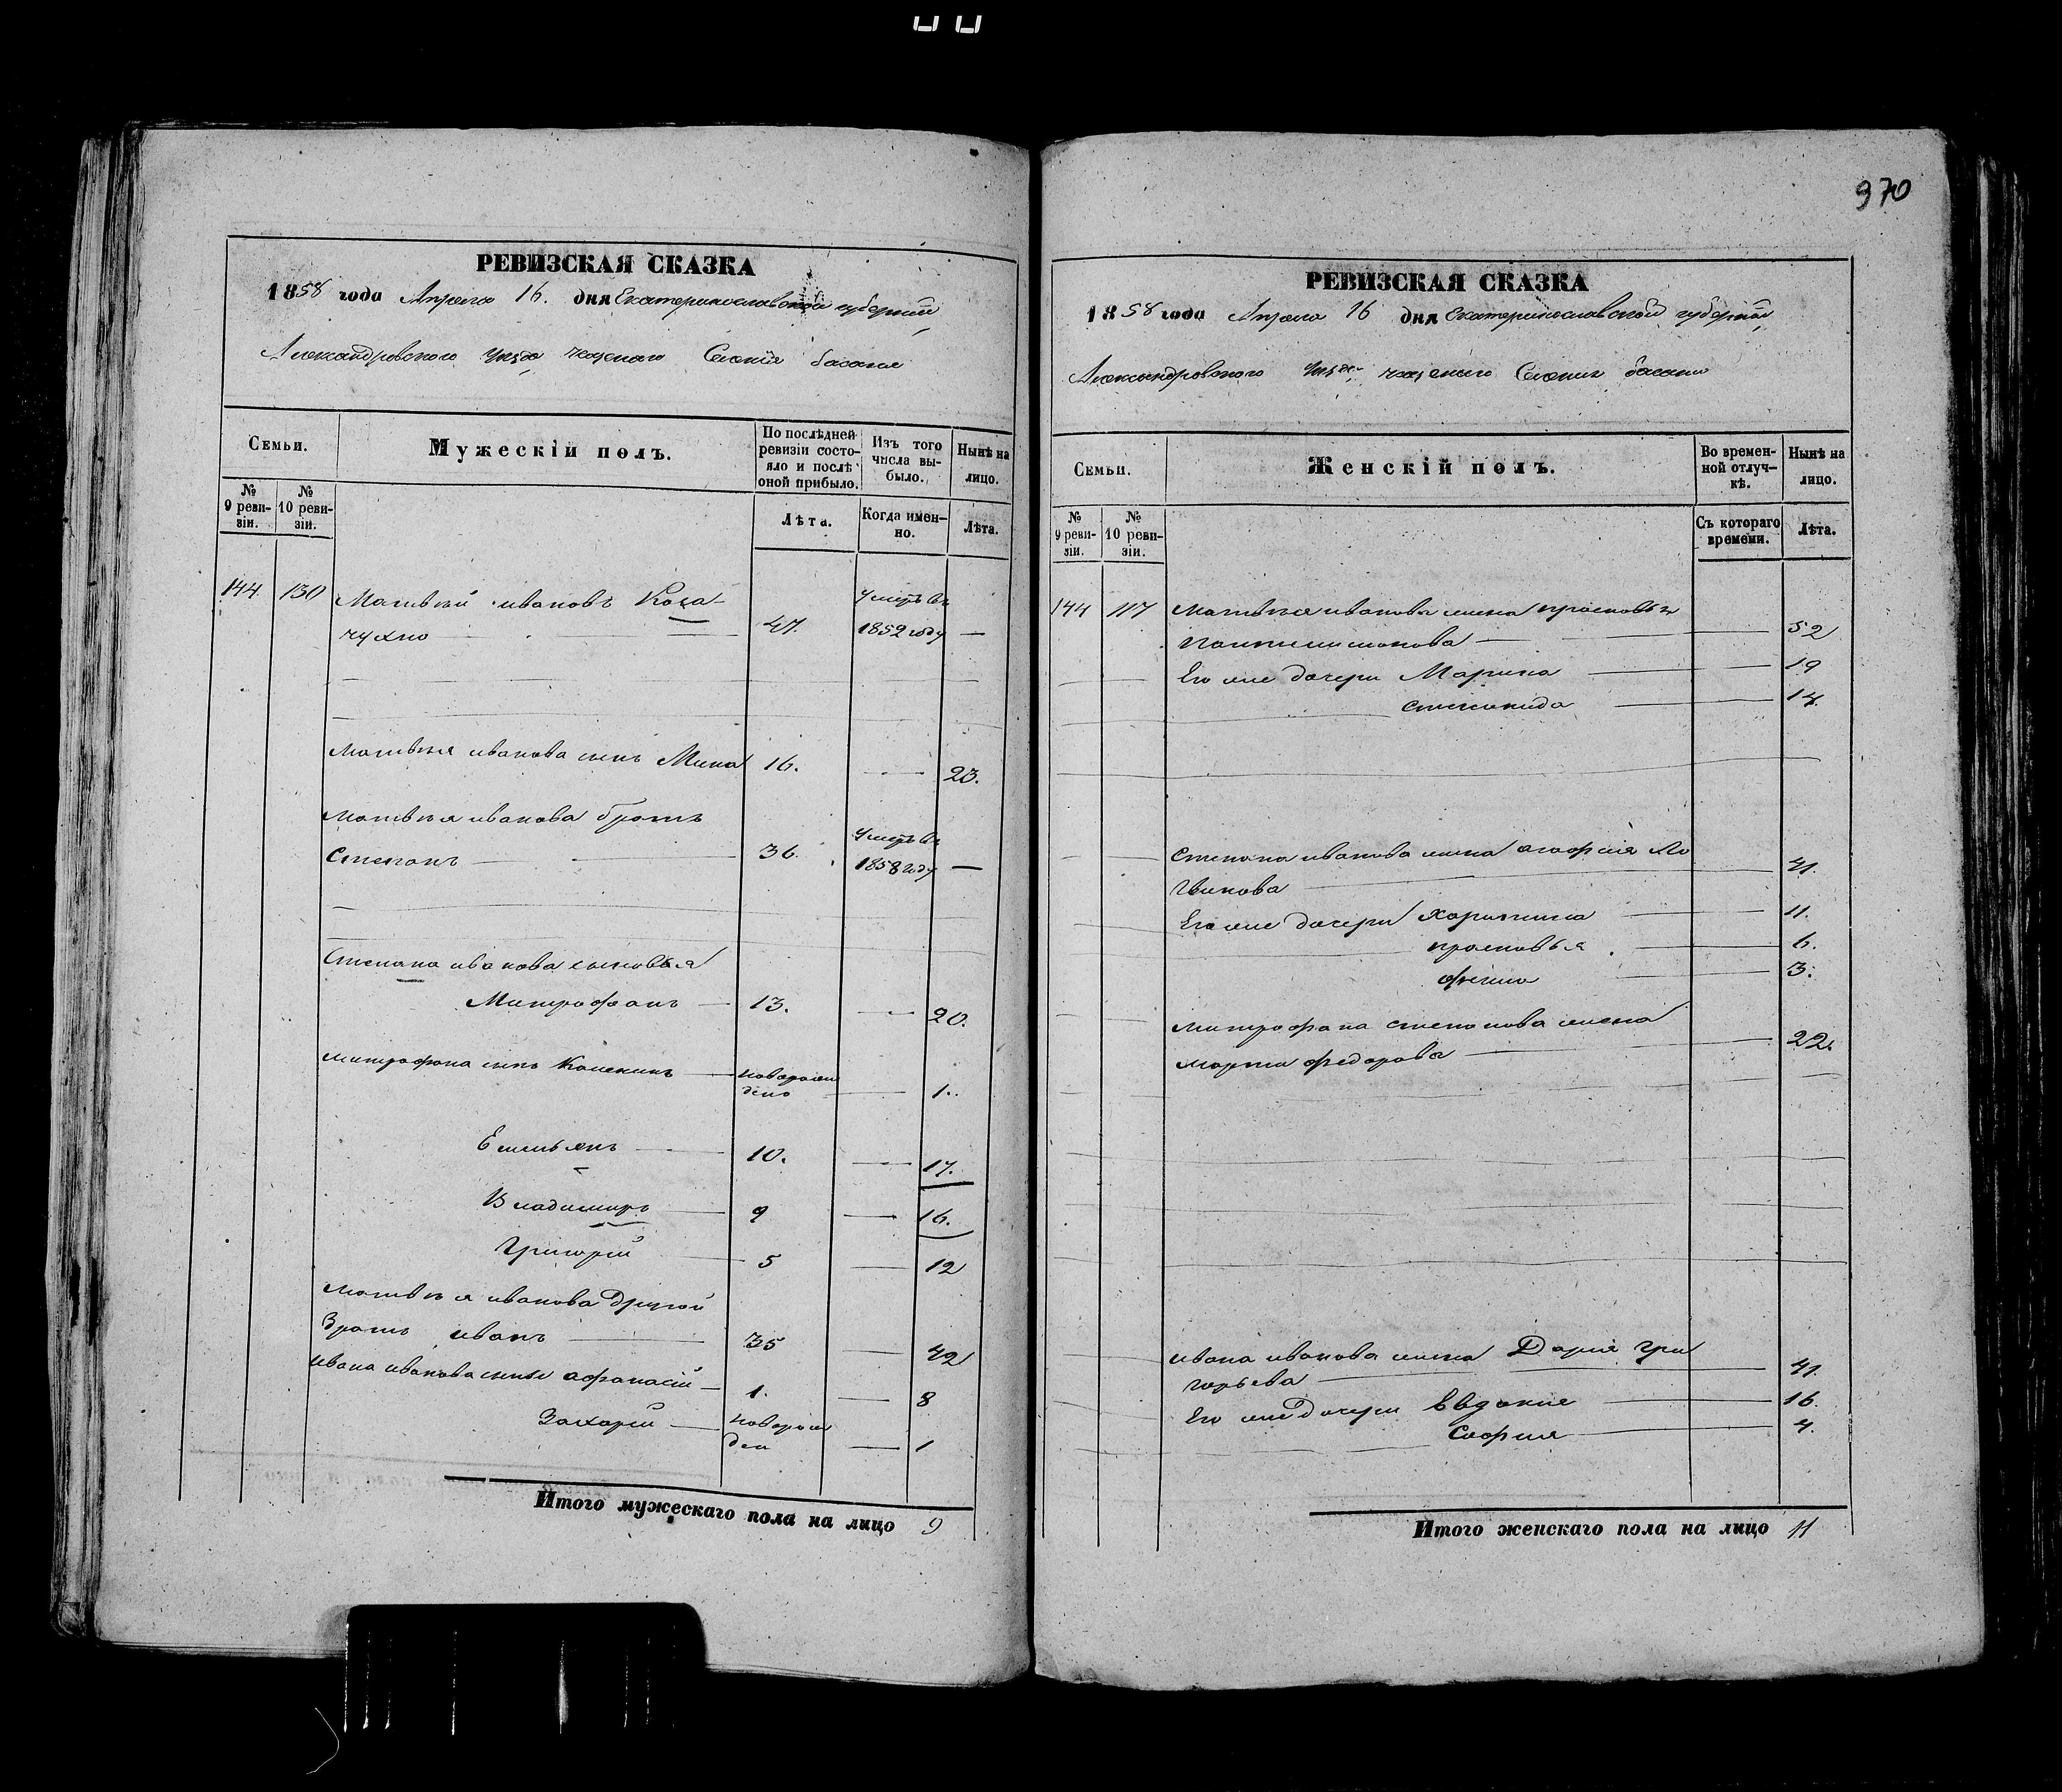 970
РЕВИЗСКАЯ СКАЗКА
1858 года Апреля 16. дня Екатеринославской губернии
Александровского уезда казенного Селения басане
Семьи.
Мужескій полъ.
По послѣдней ревизіи состояло и послѣ оной прибыло.
Изъ того числа выбыло.
Нынѣ на лицо.
№ 9 ревизіи.
№ 10 ревизіи.
Лѣта.
Когда именно.
Лѣта.
144 130 Матвѣй ивановъ Коза-
чухно 47. Умеръ въ 1852 году —
Матвѣя иванова сынъ Мина 16. — 23.
Матвѣя иванова братъ
Степанъ 36. Умеръ въ 1858 году —
Степана иванова сыновья
Митрофанъ 13. — 20.
Митрофана сынъ новорож
дено — 1.
Емельянъ 10. — 17.
Владимиръ 9 — 16.
Григорій 5 — 12
Матвѣя иванова другой
братъ иванъ 35 — 42
ивана иванова сыны афанасій 1. — 8
Захарій новорож
ден — 1
Итого мужескаго пола на лицо 9
РЕВИЗСКАЯ СКАЗКА
1858 года Апреля 16 дня Екатеринославской губернии
Александровского уезда казенного Селения басани
Семьи.
Женскій полъ.
Во временной отлучкѣ.
Нынѣ на лицо.
№ 9 ревизіи.
№ 10 ревизіи.
Съ котораго времени.
Лѣта.
144 117 Матвѣя иванова жена прасковья
пантелимонова 52
Его же дочери Марина 19
степанида 14.
Степана иванова жена агафия Ло
гвинова 41.
Его же дочери харитина 11.
прасковья 6.
3.
митрофана степанова жена
марта федорова 22.
ивана иванова жена Дария гри
горьева 41.
Его же дочери Евдокия 16.
София 4.
Итого женскаго пола на лицо 11